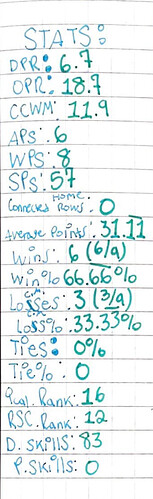 STATS:
DPR: 6.7
OPR: 18.9
CCWM: 11.9
APS: 6
WPS: 8
SPS: 57
HOME
Connected Rows: 0
Average Points: 31.11
Wins: 6 (6/9)
Win% 66.66%
Losses: 3 (3/9)
Loss%: 33.33%
Ties: 0%
Tie%: 0
Qual. Rank: 16
RSC. Rank: 12
D. Skills: 83
P. Skills: 0